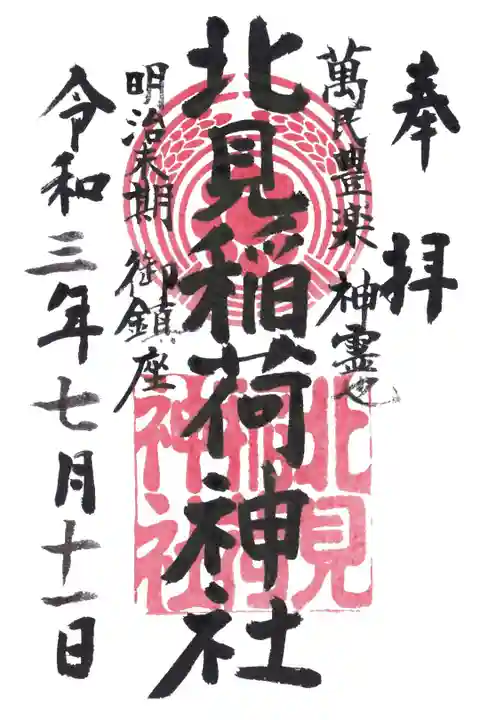 奉拝
萬民豊楽 神霊也
北見稲荷神社
明治末期 御鎮座
令和三年七月十一日
北見
稲荷
神社